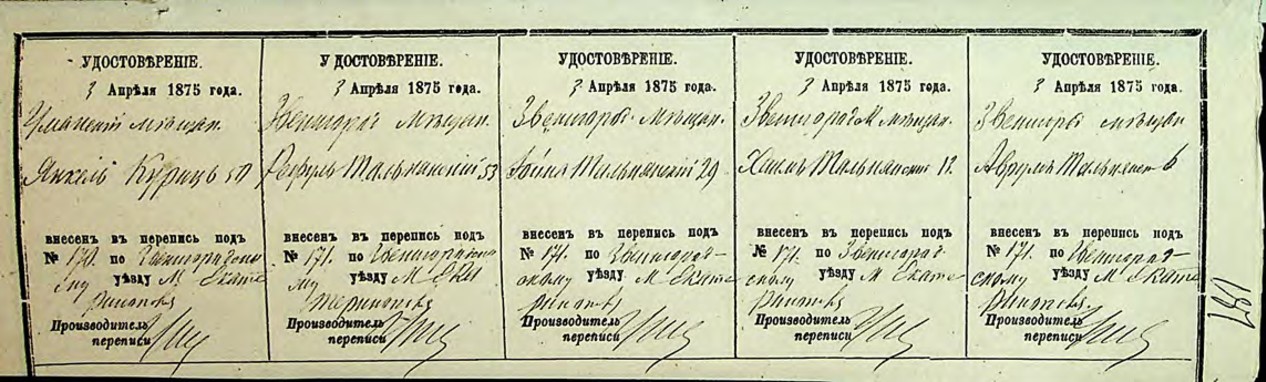 УДОСТОВѢРЕНІЕ.
3 Апрѣля 1875 года.
Уманскій мѣщан.
Янкель 50
внесенъ въ перепись подъ
№ 170. по Звенигородско
му уѣзду М. Екате
ринополь
Производитель
переписи
УДОСТОВѢРЕНІЕ.
3 Апрѣля 1875 года.
Звенигород мѣщан.
Тальнянскій 53
внесенъ въ перепись подъ
№ 171. по Звенигородско
му уѣзду М Ека
теринополь
Производитель
переписи
УДОСТОВѢРЕНІЕ.
3 Апрѣля 1875 года.
Звенигород. мѣщан.
Тальнянскій 29
внесенъ въ перепись подъ
№ 171. по Звенигород-
скому уѣзду М Екате
ринополь
Производитель
переписи
УДОСТОВѢРЕНІЕ.
3 Апрѣля 1875 года.
Звенигород мѣщан.
Хаимъ Тальнянскій
внесенъ въ перепись подъ
№ 171. по Звенигород-
скому уѣзду М Екате
ринополь
Производитель
переписи
УДОСТОВѢРЕНІЕ.
3 Апрѣля 1875 года.
Звенигород мѣщан
Аврумъ Тальнянск 6
внесенъ въ перепись подъ
№ 171. по Звенигород-
скому уѣзду М Екате
ринополь
Производитель
переписи